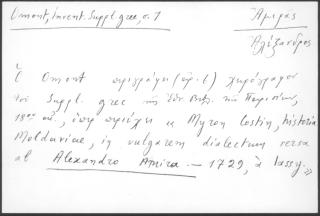 Omont, Invent. Suppl grec, σ. 1
Ἀμηρᾶς
Ἀλέξανδρος
Ὁ Omont περιγράφει (ἀρ. 6) χειρόγραφον
τοῦ Suppl. grec τῆς Ἐθν. Βιβ. τῶν Παρισίων,
18ου αἰ., ὅπερ περιέχει « Myron Costin, historia
Moldaviae, in vulgarem dialectum versa
ab Alexandro Amira. — 1729, à Iassy. »